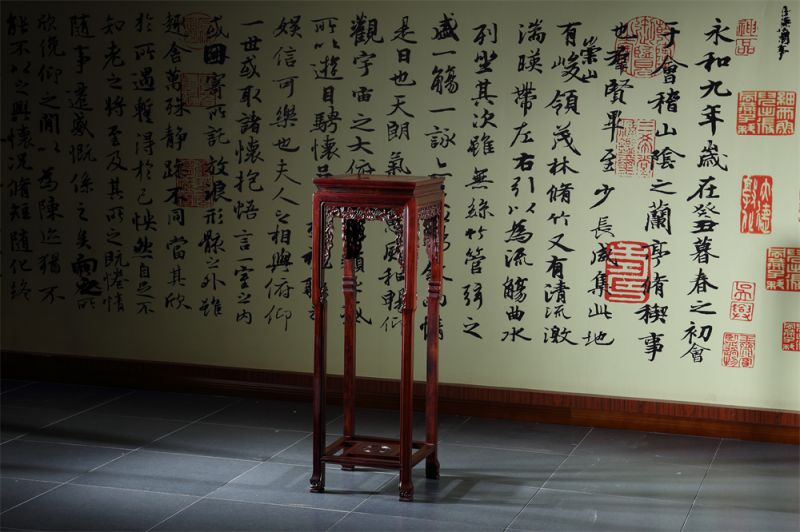 永和九年歲在癸丑暮春之初會
于會稽山陰之蘭亭脩稧事
也羣賢畢至少長咸集此地
有崇山峻領茂林脩竹又有清流激
湍暎帶左右引以為流觴曲水
列坐其次雖無絲竹管弦之
盛一觴一詠情
是日也天朗氣風和暢仰
觀宇宙之大俯類之盛
所以遊目騁懷
娛信可樂也夫人之相與俯仰
一世或取諸懷抱悟言一室之內
或因寄所託放浪形骸之外雖
趣舍萬殊靜躁不同當其欣
於所遇暫得於己怏然自足不
知老之將至及其所之既惓情
隨事遷感慨係之矣向之所
欣俛仰之閒以為陳迹猶不
能不以之興懷況脩短隨化終